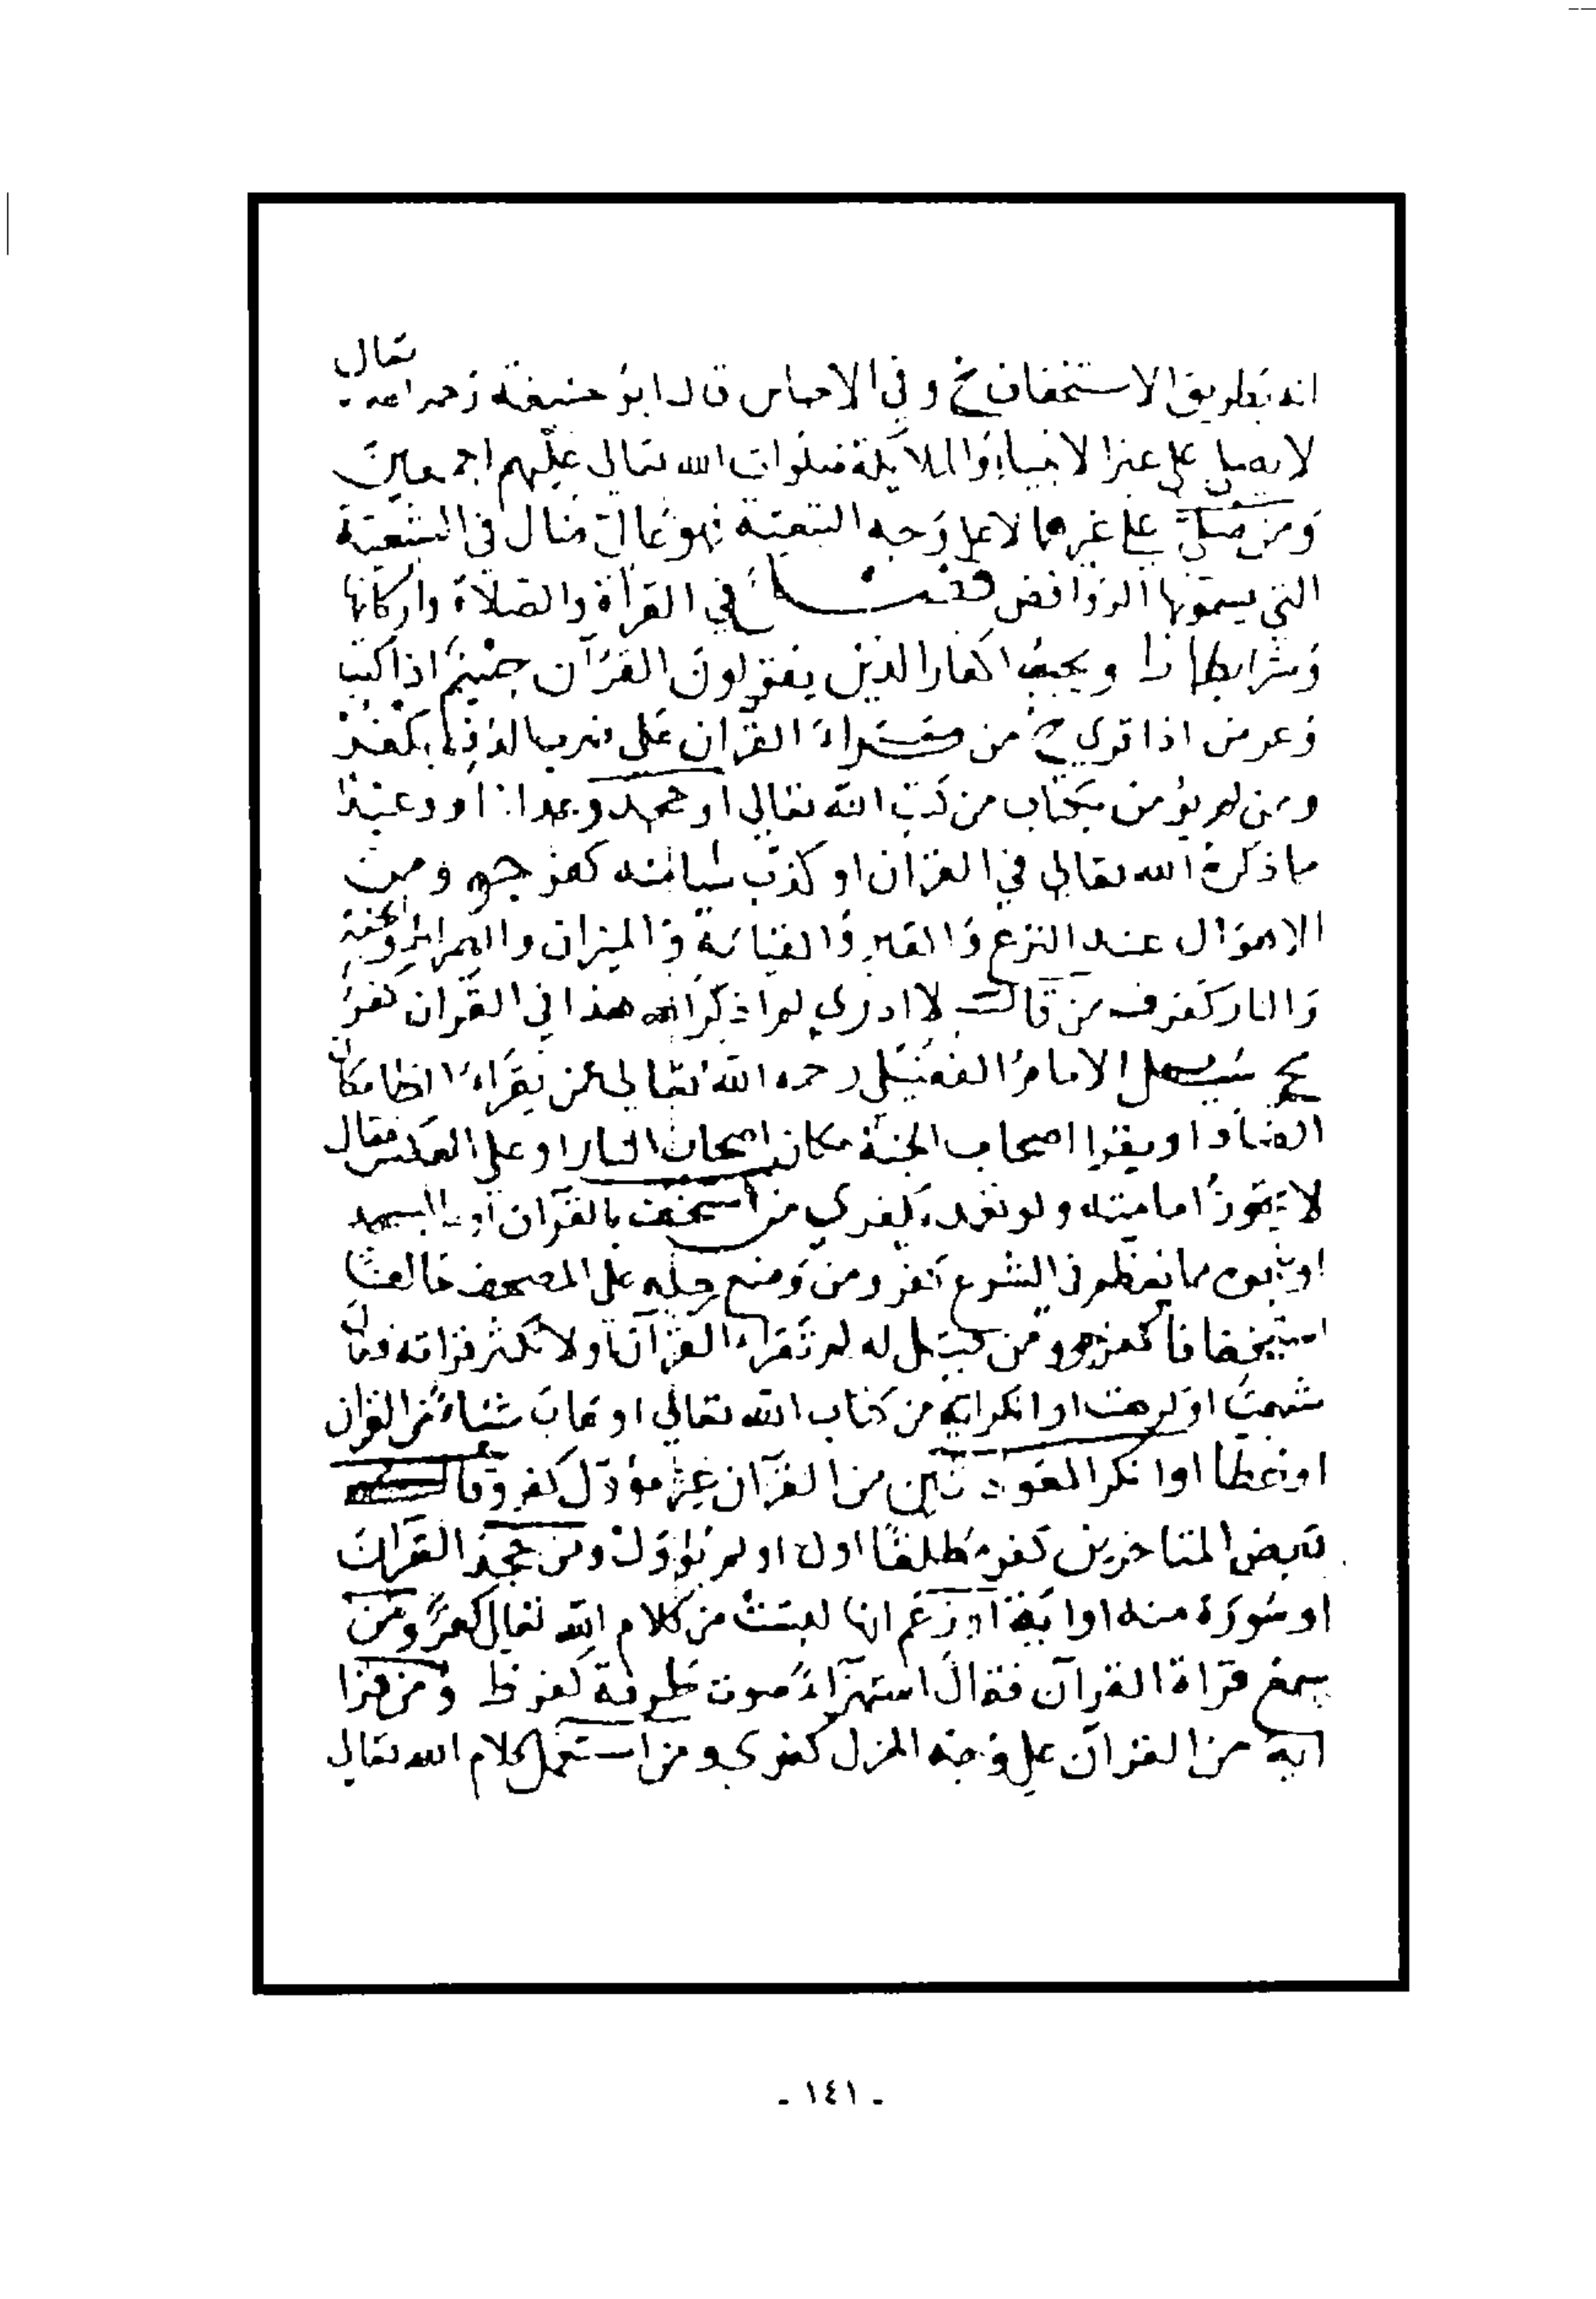 انه بطريق الاستخفاف خ وفي الاجناس قال ابو حنيفة رحمه الله تعالى
لا يصلي على غير الانبياء والملائكة صلوات الله تعالى عليهم اجمعين
ومن صلى على غيرهما لا على وجه التبعية فهو غال في الشيعة
التي يسمونها الروافض فصل في القراة والصلاة واركانها
وشرايطها ويجب اكفار الذين يقولون القرآن جسم اذا كتب
وعرض اذا قري خ من قراء القرآن على ضرب الدف يكفر
ومن لم يؤمن بكتاب من كتب الله تعالى او جحد وعدا او وعيدا
ما ذكره الله تعالى في القرآن او كذب شيا منه كفر ومن
الاهوال عند النزع والقبر والقيامة والميزان والصراط والجنة
والنار كفر من قال لا ادري لم ذكر الله هذا في القرآن كفر
سيل الامام الفضلي رحمه الله تعالى عمن يقراء الظا مكان
الضاد او يقرا اصحاب الجنة مكان اصحاب النار او على العكس فقال
لا تجوز امامته ولو تعمد يكفر من استخف بالقرآن او المسجد
او بنحوه مما يعظم في الشرع كفر ومن وضع رجله على المصحف حالفا
استخفافا كفر ومن قيل له لم تقراء القرآن او لا تكثر قراته فقال
شبعت او كرهت او انكر اية من كتاب الله تعالى او عاب شياء من القرآن
او خطا او انكر المعوذتين من القرآن غير مؤول كفر وقال
بعض المتاخرين كفر مطلقا اول او لم يؤول ومن جحد القرآن
او سورة منه او اية او زعم انها ليست من كلام الله تعالى كفر ومن
سمع قراة القرآن فقال استهزاء صوت طرفة كفر ومن قرا
اية من القرآن على وجه الهزل كفر ومن استعمل كلام الله تعالى
- ١٤١ -